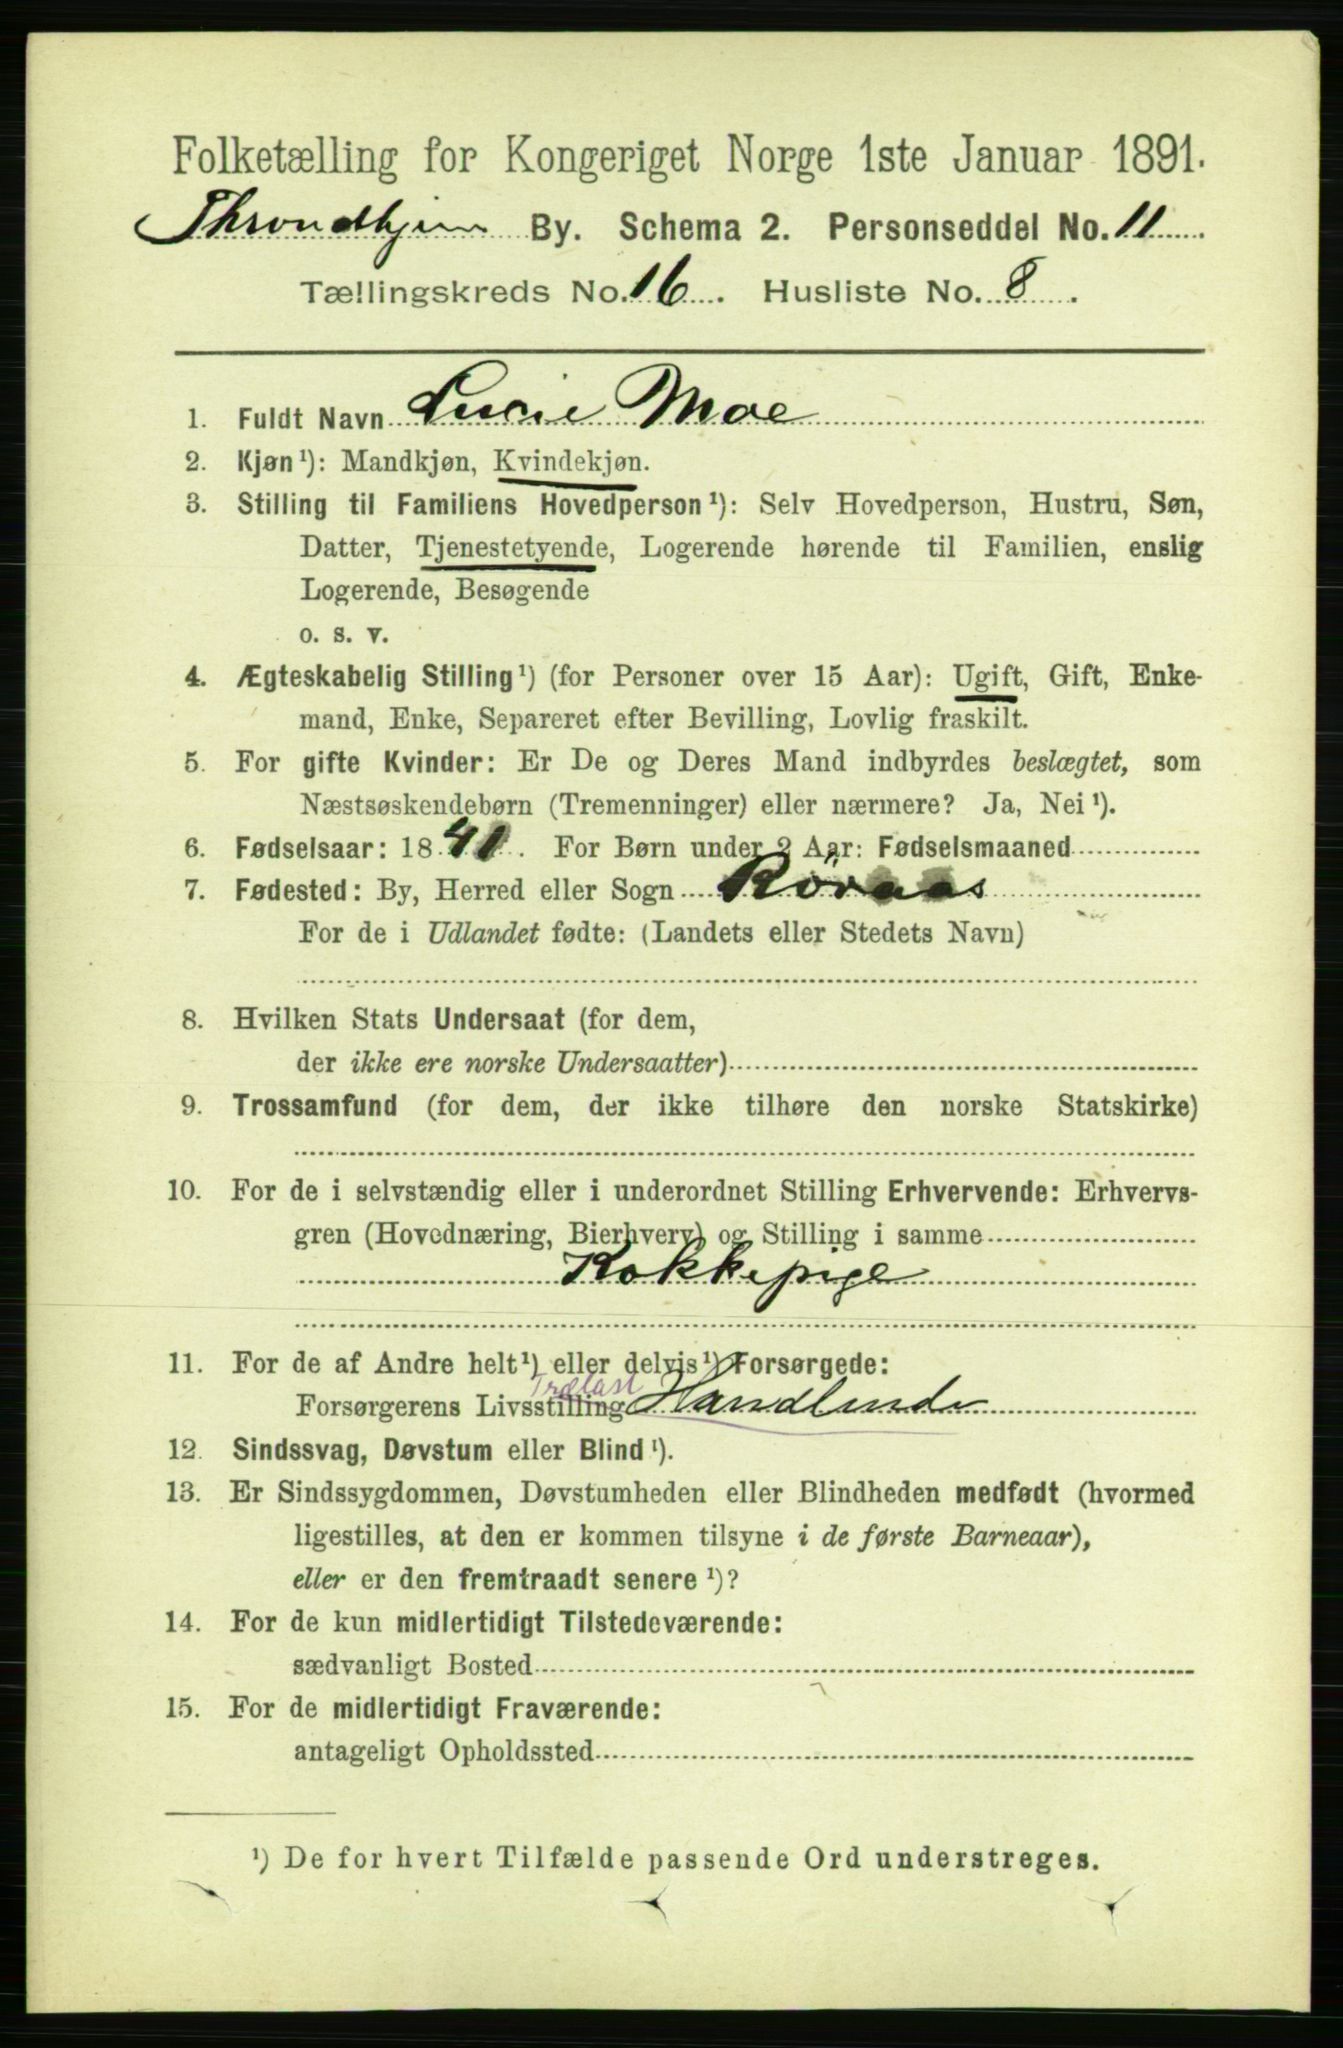 Folketælling for Kongeriget Norge 1ste Januar 1891.
Throndhjem By. Schema 2. Personseddel No. 11
Tællingskreds No. 16. Husliste No. 8.
1. Fuldt Navn Lucie Moe
2. Kjøn¹): Mandkjøn, Kvindekjøn.
3. Stilling til Familiens Hovedperson¹): Selv Hovedperson, Hustru, Søn,
Datter, Tjenestetyende, Logerende hørende til Familien, enslig
Logerende, Besøgende
o. s. v.
4. Ægteskabelig Stilling¹) (for Personer over 15 Aar): Ugift, Gift, Enke-
mand, Enke, Separeret efter Bevilling, Lovlig fraskilt.
5. For gifte Kvinder: Er De og Deres Mand indbyrdes beslægtet, som
Næstsøskendebørn (Tremenninger) eller nærmere? Ja, Nei¹).
6. Fødselsaar: 1841. For Børn under 2 Aar: Fødselsmaaned
7. Fødested: By, Herred eller Sogn Röraas
For de i Udlandet fødte: (Landets eller Stedets Navn)
8. Hvilken Stats Undersaat (for dem,
der ikke ere norske Undersaatter)
9. Trossamfund (for dem, der ikke tilhøre den norske Statskirke)
10. For de i selvstændig eller i underordnet Stilling Erhvervende: Erhvervs-
gren (Hovednæring, Bierhverv) og Stilling i samme
Kokkepige
11. For de af Andre helt¹) eller delvis¹) Forsørgede:
Trælast
Forsørgerens Livsstilling Handlende
12. Sindssvag, Døvstum eller Blind¹).
13. Er Sindssygdommen, Døvstumheden eller Blindheden medfødt (hvormed
ligestilles, at den er kommen tilsyne i de første Barneaar),
eller er den fremtraadt senere¹)?
14. For de kun midlertidigt Tilstedeværende:
sædvanligt Bosted
15. For de midlertidigt Fraværende:
antageligt Opholdssted
¹) De for hvert Tilfælde passende Ord understreges.